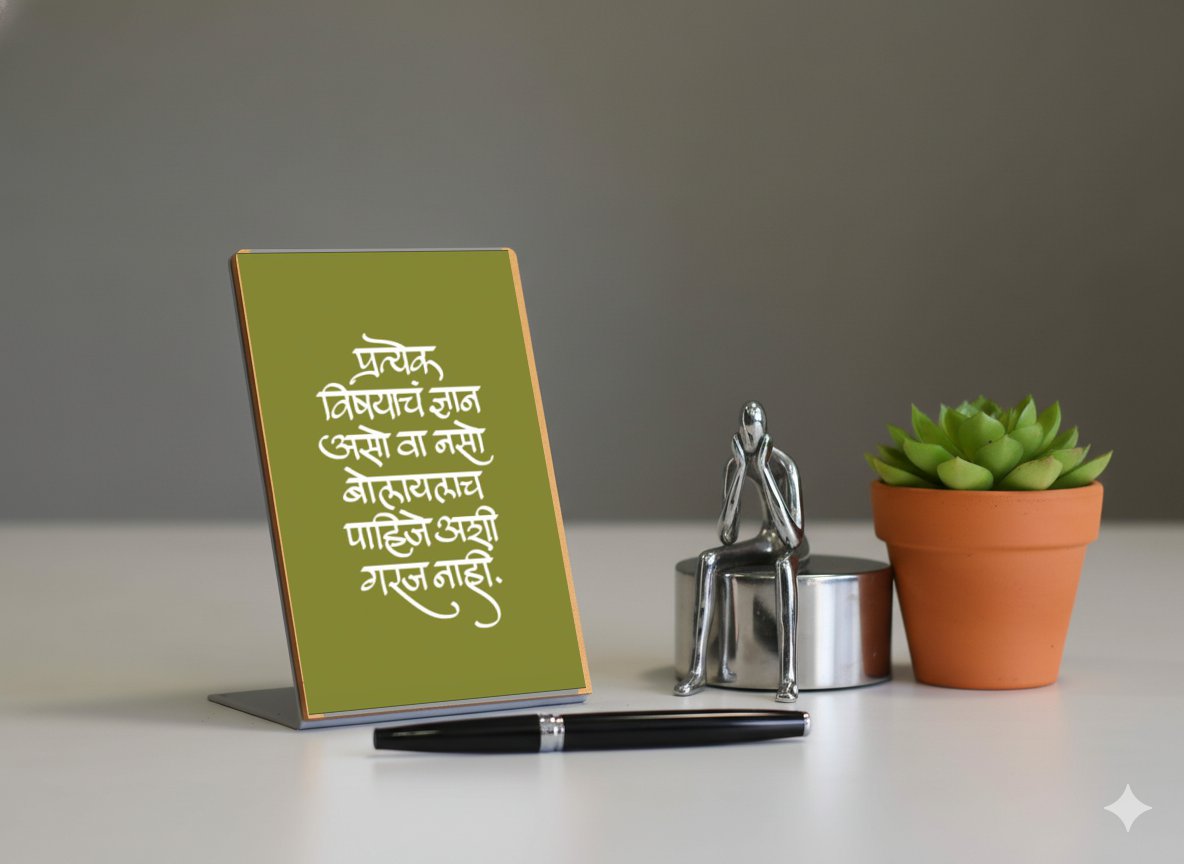 प्रत्येक
विषयाचं ज्ञान
असो वा नसो
बोलायलाच
पाहिजे अशी
गरज नाही.